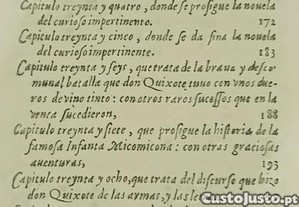 Capitulo treynta y quatro, donde se prosigue la nouela
del curioso impertinente. 172
Capitulo treynta y cinco, donde se da fin a la nouela
del curioso impertinente. 183
Capitulo treynta y seys, que trata de la braua y desco-
munal batalla que don Quixote tuuo con vnos cue-
ros de vino tinto: con otros raros sucessos que en la
venta sucedieron, 188
Capitulo treynta y siete, que prosigue la historia de la
famosa Infanta Micomicona: con otras graciosas
auenturas, 193
Capitulo treynta y ocho, que trata del discurso que hizo
don Quixote de las armas, y las
CustoJusto.pt